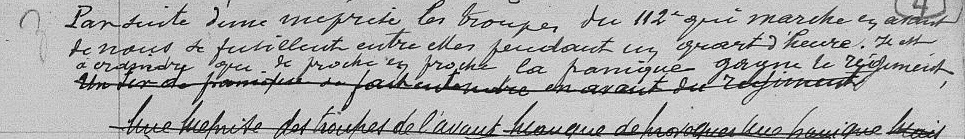 4
Par suite d'une méprise les troupes du 112e qui marche en avant
de nous se fusillent entre elles pendant un quart d'heure. Il est
à craindre que de proche en proche la panique gagne le régiment,
Un de panique se fait entendre en avant du régiment
Une méprise des troupes de l'avant manque de provoquer une panique Mais